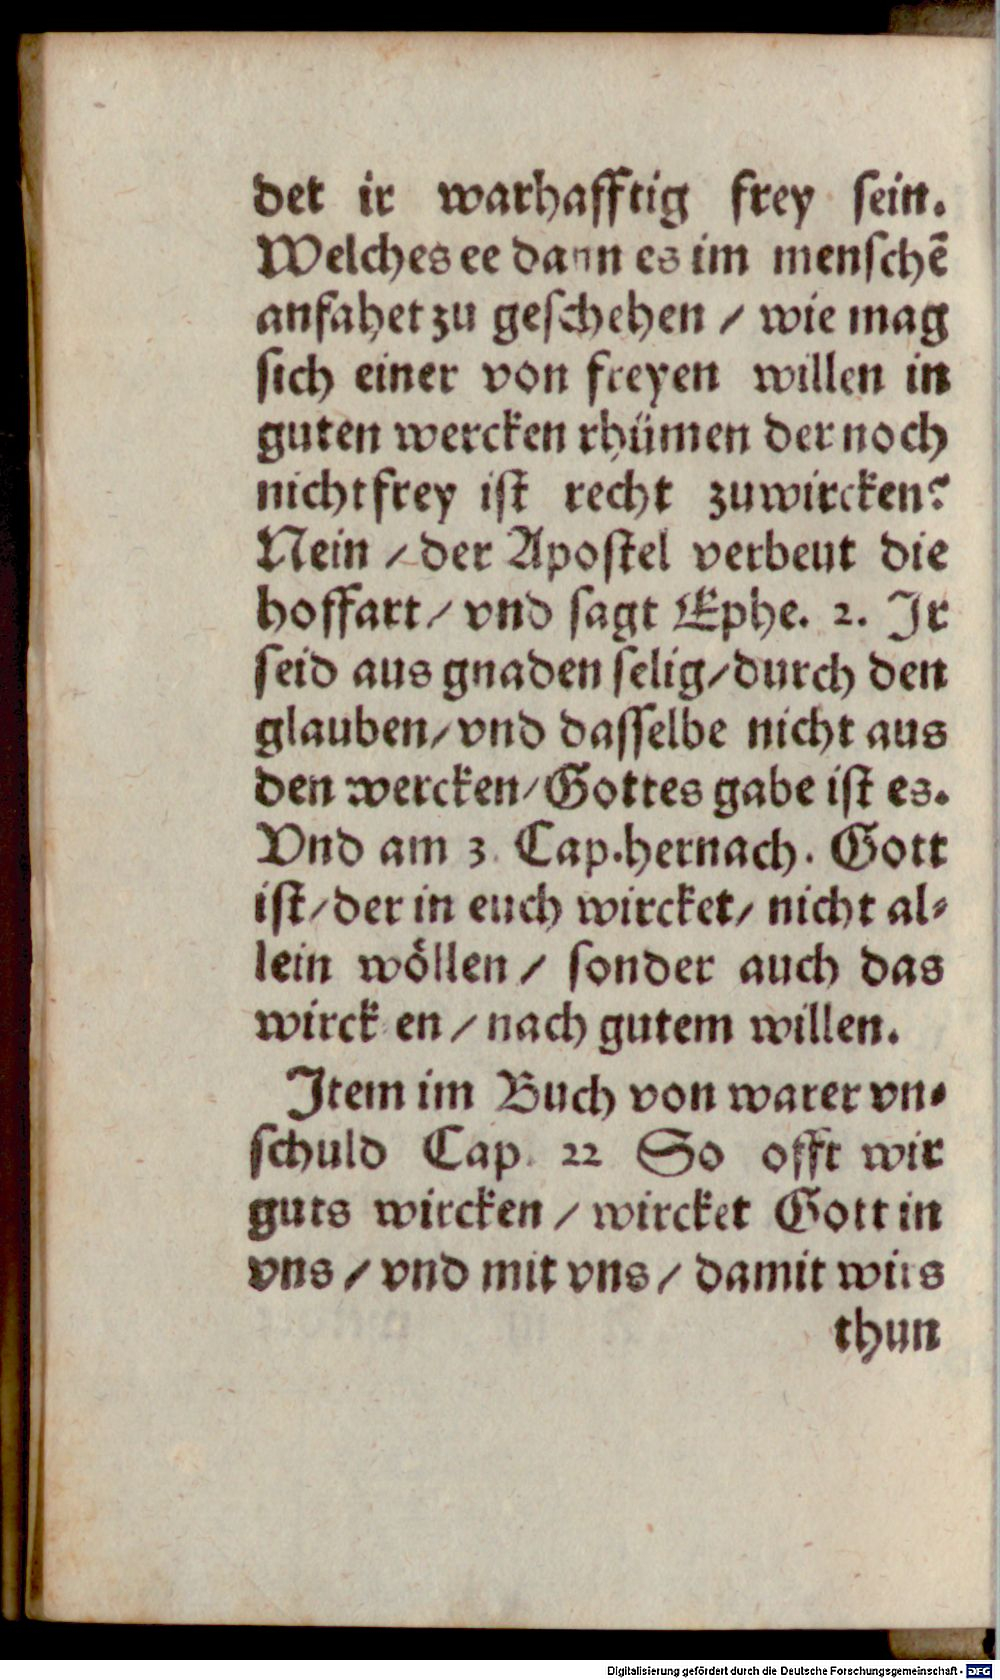 det ir warhafftig frey sein.
Welches ee dann es im menschē
anfahet zu geschehen / wie mag
sich einer von freyen willen in
guten wercken rhümen der noch
nicht frey ist recht zuwircken?
Nein / der Apostel verbeut die
hoffart / vnd sagt Ephe. 2. Jr
seid aus gnaden selig / durch den
glauben / vnd dasselbe nicht aus
den wercken / Gottes gabe ist es.
Vnd am 3. Cap. hernach. Gott
ist / der in euch wircket / nicht al⸗
lein wöllen / sonder auch das
wirck en / nach gutem willen.
Jtem im Buch von warer vn⸗
schuld Cap. 22 So offt wir
guts wircken / wircket Gott in
vns / vnd mit vns / damit wirs
thun
Digitalisierung gefördert durch die Deutsche Forschungsgemeinschaft - DFG